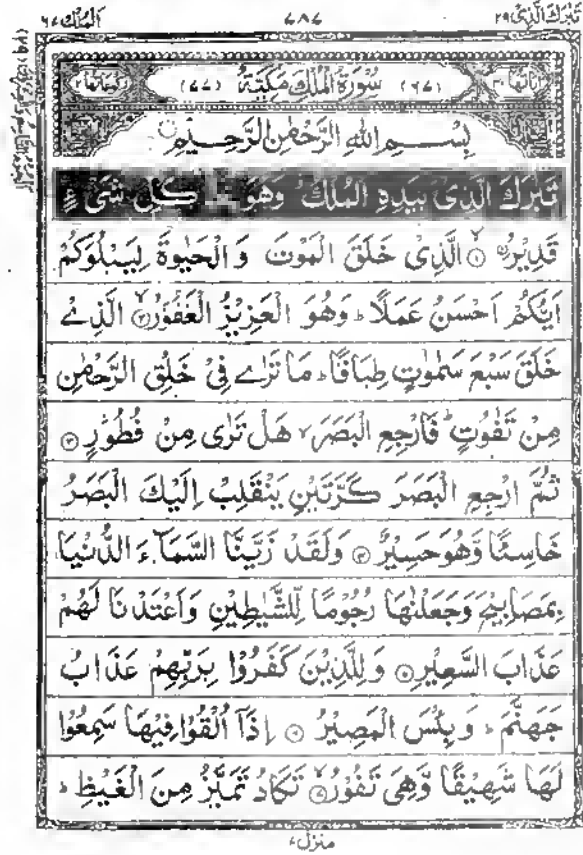 تَبٰرَكَ الَّذِیْ ٢٩
٧٨٧
اَلْمُلْك ٦٧
اٰیَاتُهَا ٣٠
(٦٧) سُوْرَةُ الْمُلْكِ مَكِّیَّةٌ (٧٧)
رُكُوْعَاتُهَا ٢
بِسْمِ اللهِ الرَّحْمٰنِ الرَّحِیْمِ
تَبٰرَكَ الَّذِیْ بِیَدِهِ الْمُلْكُ وَهُوَ كُلِّ شَیْءٍ
قَدِیْرُۨ ۙ﴿١﴾ الَّذِیْ خَلَقَ الْمَوْتَ وَ الْحَیٰوةَ لِیَبْلُوَكُمْ
اَیُّكُمْ اَحْسَنُ عَمَلًا ؕ وَهُوَ الْعَزِیْزُ الْغَفُوْرُ ۙ﴿٢﴾ الَّذِیْ
خَلَقَ سَبْعَ سَمٰوٰتٍ طِبَاقًا ؕ مَا تَرٰی فِیْ خَلْقِ الرَّحْمٰنِ
مِنْ تَفٰوُتٍ ؕ فَارْجِعِ الْبَصَرَ ۙ هَلْ تَرٰی مِنْ فُطُوْرٍ ﴿٣﴾
ثُمَّ ارْجِعِ الْبَصَرَ كَرَّتَیْنِ یَنْقَلِبْ اِلَیْكَ الْبَصَرُ
خَاسِئًا وَّهُوَ حَسِیْرٌ ﴿٤﴾ وَلَقَدْ زَیَّنَّا السَّمَآءَ الدُّنْیَا
بِمَصَابِیْحَ وَجَعَلْنٰهَا رُجُوْمًا لِّلشَّیٰطِیْنِ وَاَعْتَدْنَا لَهُمْ
عَذَابَ السَّعِیْرِ ﴿٥﴾ وَلِلَّذِیْنَ كَفَرُوْا بِرَبِّهِمْ عَذَابُ
جَهَنَّمَ ؕ وَبِئْسَ الْمَصِیْرُ ﴿٦﴾ اِذَاۤ اُلْقُوْا فِیْهَا سَمِعُوْا
لَهَا شَهِیْقًا وَّهِیَ تَفُوْرُ ۙ﴿٧﴾ تَكَادُ تَمَیَّزُ مِنَ الْغَیْظِ ؕ
منزل ٧